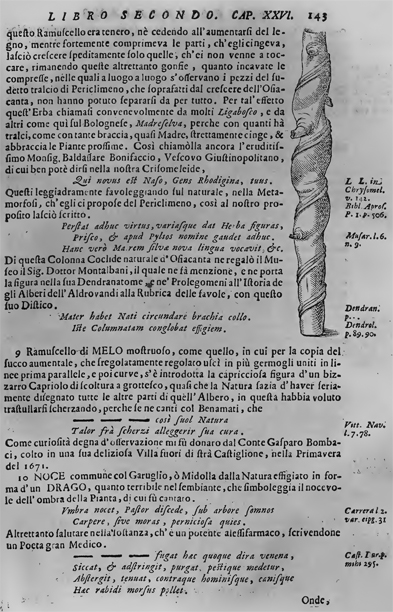 LIBRO SECONDO. CAP. XXVI. 143
questo Ramuscello era tenero, nè cedendo all'aumentarsi del le-
gno, mentre fortemente comprimeva le parti, ch'egli cingeva,
lasciò crescere speditamente solo quelle, ch'ei non venne a toc-
care, rimanendo queste altrettanto gonfie, quanto incavate le
compresse, nelle quali a luogo a luogo s'osservano i pezzi del su-
detto tralcio di Periclimeno, che soprafatti dal crescere dell'Osia-
canta, non hanno potuto separarsi da per tutto. Per tal'effetto
quest'Erba chiamasi convenevolmente da molti Ligabosco, e da
altri come qui sul Bolognese, Madreselva, perche con quanti hà
tralci, come con tante braccia, quasi Madre, strettamente cinge, &
abbraccia le Piante prossime. Così chiamolla ancora l'eruditis-
simo Monsig. Baldassare Bonifaccio, Vescovo Giustinopolitano,
di cui ben potè dirsi nella nostra Crisomeleide,
Qui novus est Naso, Gens Rhodigina, tuus.
L. L. in
Chrysomel.
v. 142.
Bibl. Apros.
P. 1. p. 506.
Questi leggiadramente favoleggiando sul naturale, nella Meta-
morfosi, ch'egli ci propose del Periclimeno, così al nostro pro-
posito lasciò scritto.
Perstat adhuc virtus, variasque dat Herba figuras,
Prisco, & apud Pylios nomine gaudet adhuc.
Hanc verò Matrem silva nova lingua vocavit, &c.
Musar. l. 6.
n. 9.
Di questa Colonna Coclide naturale d'Osiacanta ne regalò il Mu-
seo il Sig. Dottor Montalbani, il quale ne fà menzione, e ne porta
la figura nella sua Dendranatome, e ne' Prolegomeni all'Istoria de
gli Alberi dell'Aldrovandi alla Rubrica delle favole, con questo
suo Distico.
Mater habet Nati circundare brachia collo.
Iste Columnatam conglobat effigiem.
Dendran.
p...
Dendrol.
p. 89. 90.
9 Ramuscello di MELO mostruoso, come quello, in cui per la copia del
succo aumentale, che sregolatamente regolato uscì in più germogli uniti in li-
nee prima parallele, e poi curve, s'è introdotta la capricciosa figura d'un biz-
zarro Capriolo di scoltura a grottesco, quasi che la Natura sazia d'haver seria-
mente disegnato tutte le altre parti di quell'Albero, in questa habbia voluto
trastullarsi scherzando, perche se ne canti col Benamati, che
così suol Natura
Talor frà scherzi alleggerir sua cura.
Vitt. Nav.
l. 7. 78.
Come curiosità degna d'osservazione mi fù donaro dal Conte Gasparo Bomba-
ci, colto in una sua deliziosa Villa fuori di strà Castiglione, nella Primavera
del 1671.
10 NOCE commune col Garuglio, ò Midolla dalla Natura effigiato in for-
ma d'un DRAGO, quanto terribile nel sembiante, che simboleggia il nocevo-
le dell'ombra della Pianta, di cui fù cantaro.
Umbra nocet, Pastor discede, sub arbore somnos
Carpere, sive moras, perniciosa quies.
Carrera l. 2.
var. epig. 31
Altrettanto salutare nella sostanza, ch'è un potente alessifarmaco, scrivendone
un Poeta gran Medico.
fugat hac quoque dira venena,
Siccat, & adstringit, purgat, pestique medetur,
Abstergit, tenuat, contraque hominisque, canisque
Hac rabidi morsus pollet.
Cast. Durp.
mihi 295.
Onde,